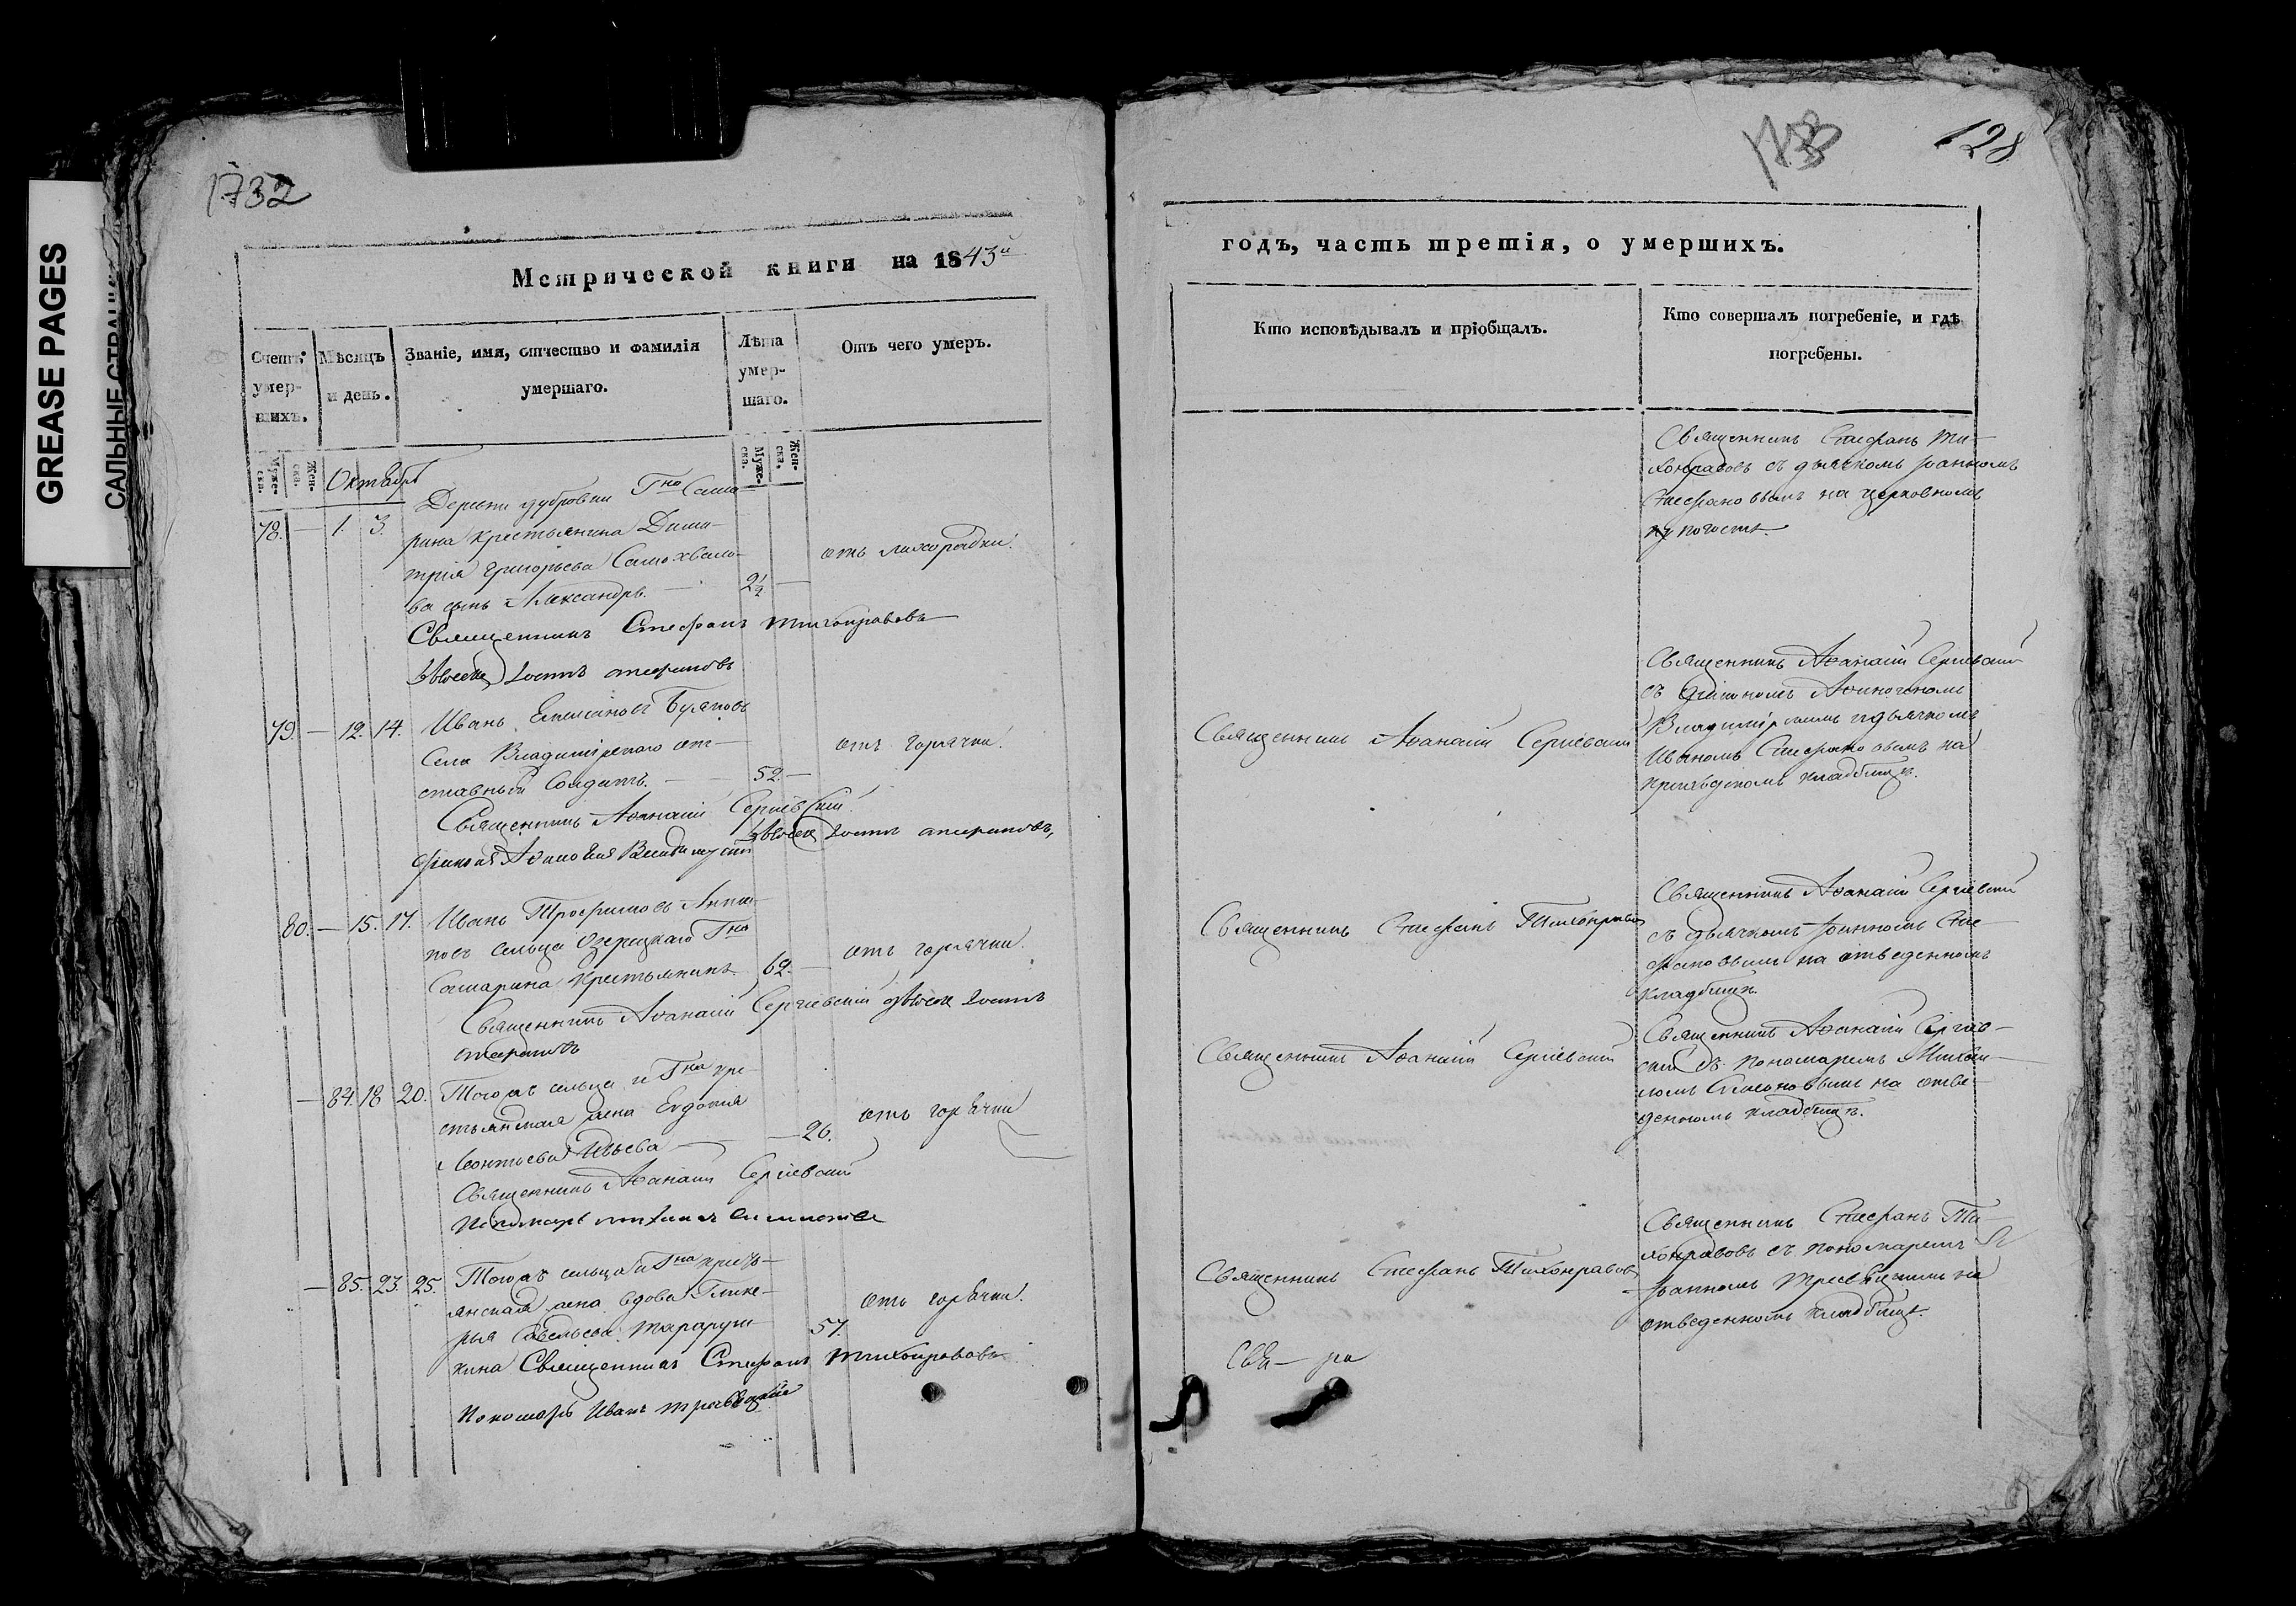 GREASE PAGES
САЛЬНЫЕ
1732
Метрической книги на 1843й
Счетъ умер-шихъ.
Муже-ска.
Жен-ска.
Мѣсяцъ и день.
Званіе, имя, отчество и фамилія
умершаго.
Лѣта умер-шаго.
Муже-ска.
Жен-ска.
Отъ чего умеръ.
Октябрь
78. — 1. 3.
Деревни Дубровки Гна Сама-
рина крестьянина Дими-
трія Григорьева Самохвало-
ва сынъ Александръ. — 2½ —
отъ лихорадки.
Священникъ Стефанъ Тихонравовъ
Стефановъ
79. — 12. 14.
Иванъ Емельяновъ
Села Владимірскаго от-
ставный Солдатъ. — 52. —
отъ горячки.
Священникъ Аѳанасій Сергіевскій
Стефановъ,
80. — 15. 17.
Иванъ Трофимовъ
села Озерецкаго Гна
Самарина крестьянинъ. 62. —
отъ горячки.
Священникъ Аѳанасій Сергіевскій
Стефановъ
— 84. 18 20.
Тогожъ сельца и Гна кре-
стьянская жена Евдокія
Леонтьева — 26.
отъ горячки
Священникъ Аѳанасій Сергіевскій
Пономарь
— 85. 23. 25.
Тогожъ сельца и Гна кресть-
янская жена вдова Глике-
рья Савельева 57.
отъ горячки.
кина Священникъ Стефанъ Тихонравовъ
Пономарь Иванъ
1733
128
годъ, часть третія, о умершихъ.
Кто исповѣдывалъ и пріобщалъ.
Кто совершалъ погребеніе, и гдѣ
погребены.
Священникъ Стефанъ Ти-
хонравовъ съ дьячкомъ Іоанномъ
Стефановымъ на церковномъ
погостѣ.
Священникъ Аѳанасій Сергіевскій
Священникъ Аѳанасій Сергіевскій
съ діакономъ
и дьячкомъ
Иваномъ Стефановымъ на
кладбищѣ.
Священникъ Стефанъ Тихонравовъ
Священникъ Аѳанасій Сергіевскій
съ дьячкомъ Іоанномъ Сте-
фановымъ на отведенномъ
кладбищѣ.
Священникъ Аѳанасій Сергіевскій
Священникъ Аѳанасій Сергіев-
скій съ пономаремъ
на отве-
денномъ кладбищѣ.
Священникъ Стефанъ Тихонравовъ
Священникъ Стефанъ Ти-
хонравовъ съ пономаремъ
Іоанномъ на
отведенномъ кладбищѣ.